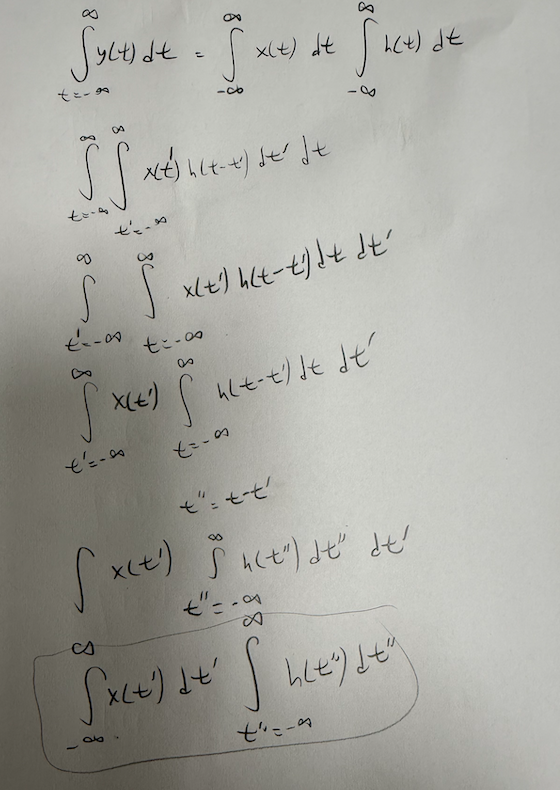 ∫_{t=-∞}^{∞} y(t) dt = ∫_{-∞}^{∞} x(t) dt ∫_{-∞}^{∞} h(t) dt
∫_{t=-∞}^{∞} ∫_{t'=-∞}^{∞} x(t') h(t-t') dt' dt
∫_{t'=-∞}^{∞} ∫_{t=-∞}^{∞} x(t') h(t-t') dt dt'
∫_{t'=-∞}^{∞} x(t') ∫_{t=-∞}^{∞} h(t-t') dt dt'
t'' = t-t'
∫ x(t') ∫_{t''=-∞}^{∞} h(t'') dt'' dt'
∫_{-∞}^{∞} x(t') dt' ∫_{t''=-∞}^{∞} h(t'') dt''